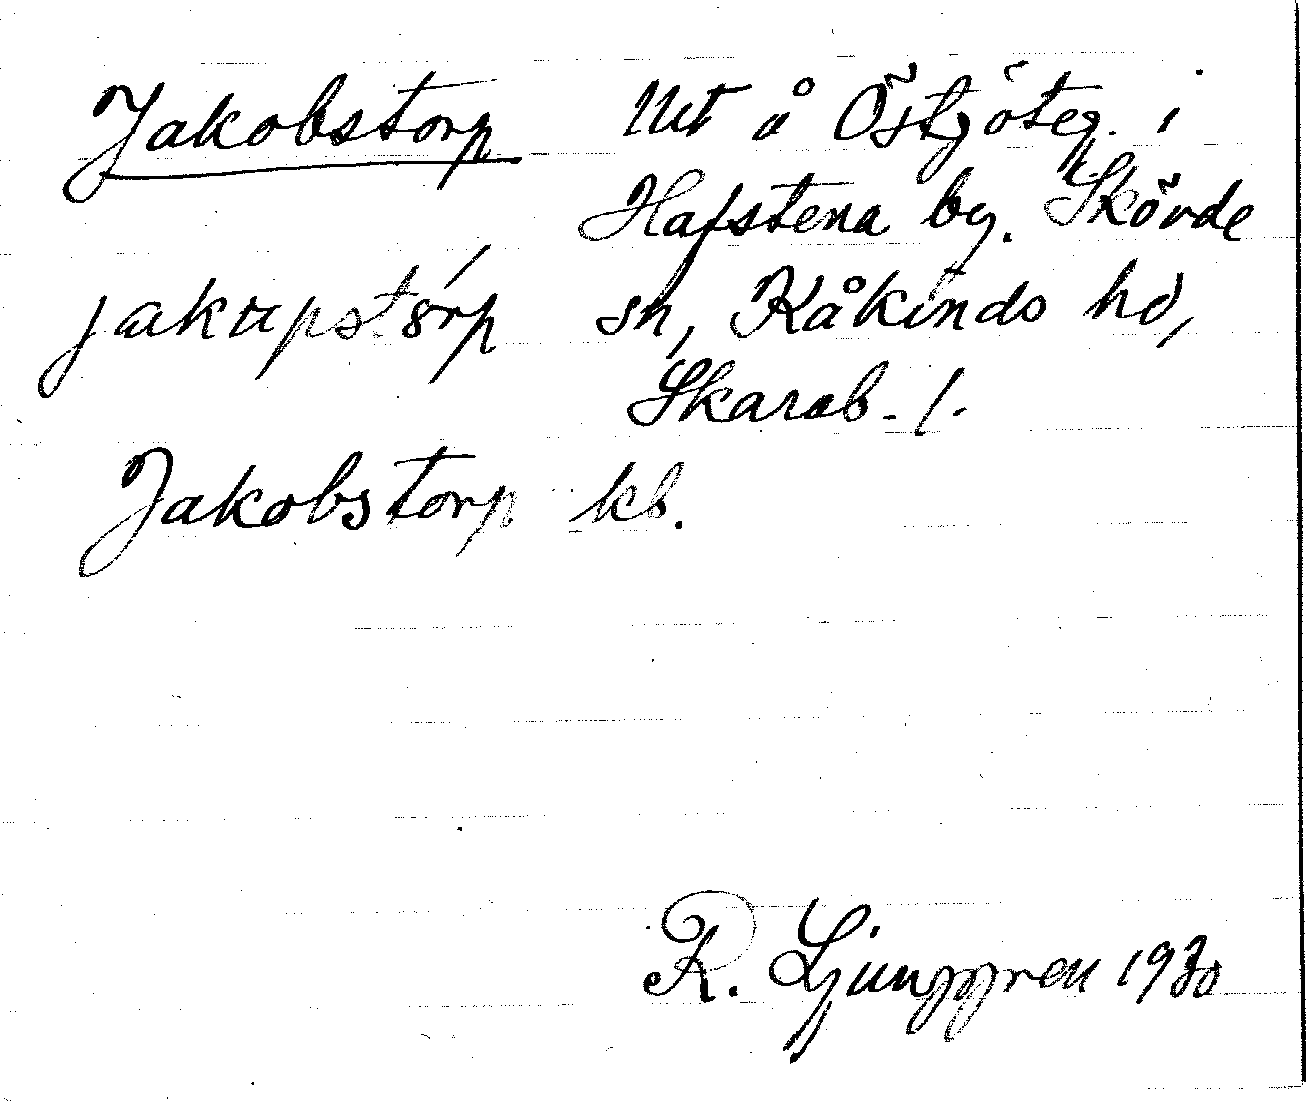 Jakobstorp Ut å Östgöteg. i
Hafstena by. Skövde
jakupstórp sn, Kåkinds hd,
Skarab. l.
Jakobstorp kb.
R. Ljunggren 1930